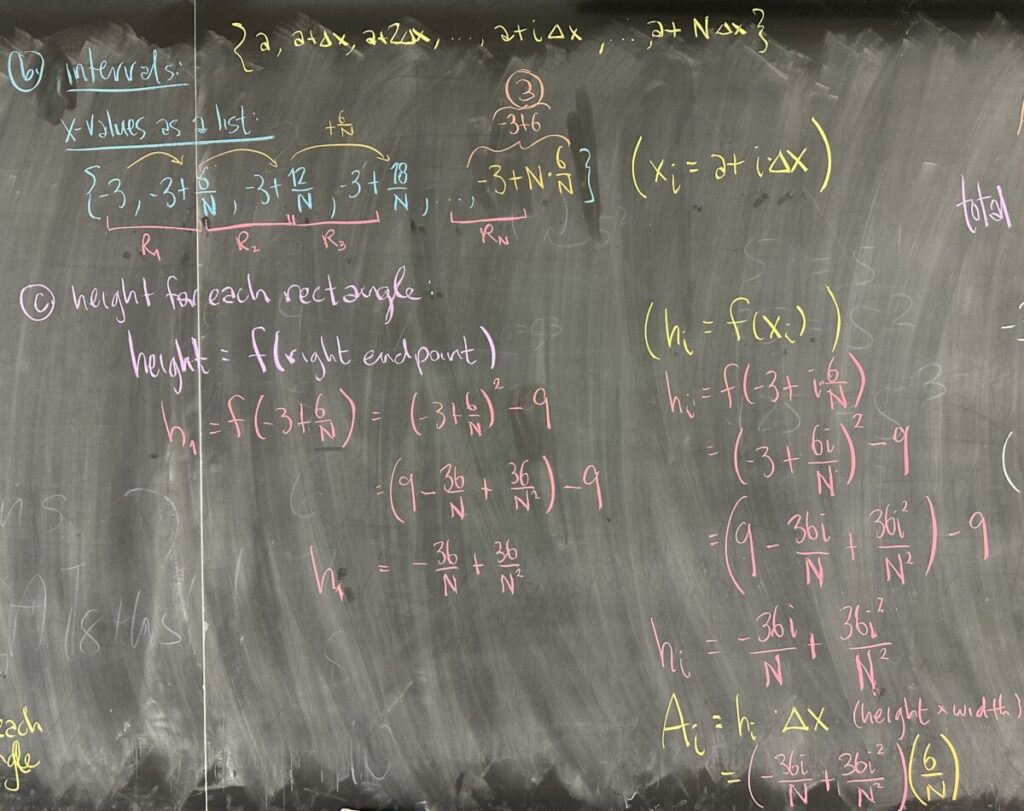 {a, a+Δx, a+2Δx, ..., a+iΔx, ..., a+N·Δx}
(b) intervals:
x-values as a list:
+6/N
(3)
-3+6
{-3, -3+6/N, -3+12/N, -3+18/N, ..., -3+N·6/N}
R₁ R₂ R₃ R_N
(x_i = a+i·Δx)
total
(c) height for each rectangle:
height = f(right endpoint)
h₁ = f(-3+6/N) = (-3+6/N)² - 9
= (9 - 36/N + 36/N²) - 9
h₁ = -36/N + 36/N²
(h_i = f(x_i))
h_i = f(-3+i·6/N)
= (-3 + 6i/N)² - 9
= (9 - 36i/N + 36i²/N²) - 9
h_i = -36i/N + 36i²/N²
A_i = h_i · Δx (height × width)
= (-36i/N + 36i²/N²)(6/N)